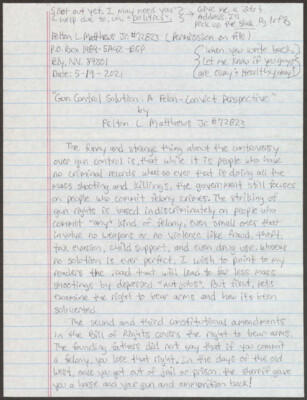 Got out yet. I may need you
help due to, um, "politics".
Give me a
address to
Pick up the slack
Pelton L. Matthews Jr. #72823 (Permission on file)
P.O. Box 1989-
Ely, NV. 89301
Date: 5-19-2021
(when you write back,
let me know if you guys
are okay & healthy okay!)
"Gun Control Solution: A Felon-Convict Perspective"
by
Pelton L. Matthews Jr. #72823
The funny and strange thing about the controversy
over gun control is, that while it is people who have
no criminal records what so ever that is doing all the
mass shooting and killings, the government still focuses
on people who commit felony crimes. The stribling of
gun rights is based indiscriminately on people who
commit "any" kind of felony. Even small ones that
involve no weapons or no violence like fraud, theft,
tax evasion, child support, and even drug use. Where
no solution is ever perfect, I wish to point to my
readers the road that will lead to far less mass
shootings by depressed "nut jobs". But first, let's
examine the right to bear arms and how its been
The second and third constitutional amendments
in the Bill of Rights covers the right to bear arms.
The founding fathers did not say that if you commit
a felony, you lose that right. In the days of the old
west, once you got out of jail or prison, the sheriff gave
you a horse and your gun and ammunition back!